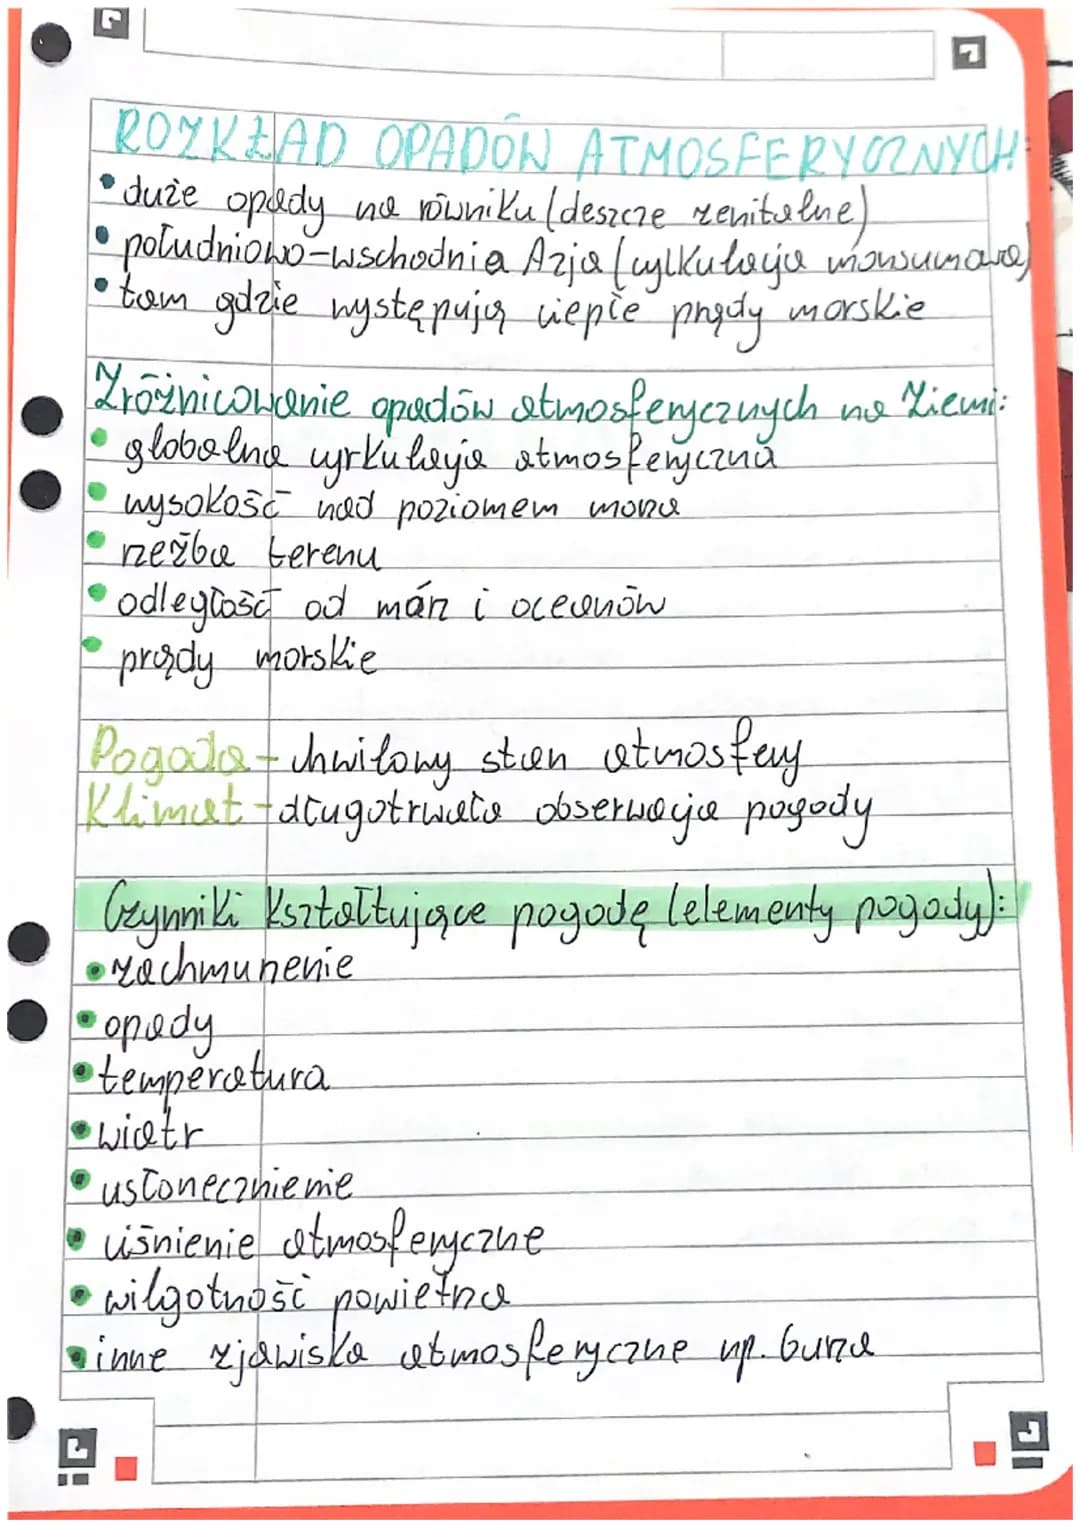 ROZKŁAD OPADÓW ATMOSFERYCZNYCH:
• duże opady na równiku (deszcze zenitalne)
• południowo-wschodnia Azja (cylkulacja monsunowa)
• tam gdzie występują ciepłe prądy morskie
Zróżnicowanie opadów atmosferycznych na Ziemi:
• globalna cyrkulacja atmosferyczna
• wysokość nad poziomem morza
• rzeźba terenu
• odległość od mórz i oceanów
• prądy morskie
Pogoda - chwilowy stan atmosfery
Klimat - długotrwała obserwacja pogody
Czynniki kształtujące pogodę (elementy pogody):
• zachmurzenie
• opady
• temperatura
• wiatr
• usłonecznienie
• ciśnienie atmosferyczne
• wilgotność powietrza
• inne zjawiska atmosferyczne np. burza